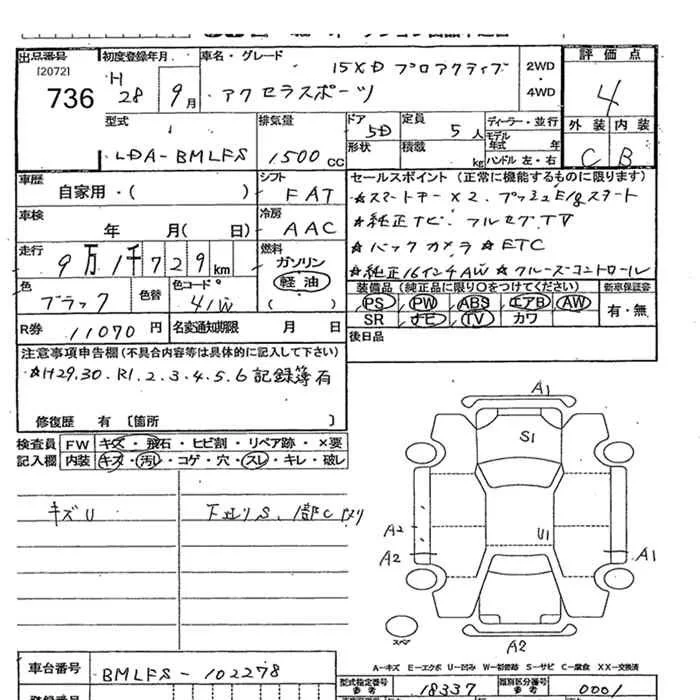 出品番号 初度登録年月 車名・グレード 評価点
[2072] H 15XD プロアクティブ 2WD
736 28 9月 アクセラスポーツ ・ 4WD 4
型式 排気量 ドア 5D 定員 5人 ディーラー・並行 外装 内装
LDA-BMLFS 1500cc 形状 積載 kg モデル年式 年 C B
ハンドル 左・右
車歴 シフト セールスポイント(正常に機能するものに限ります)
自家用・( ) FAT ☆スマートキー×2、プッシュE/gスタート
車検 年 月(日) 冷房 AAC ☆純正ナビ、フルセグTV
走行 9万1千729km 燃料 ガソリン ☆バックカメラ ☆ETC
軽油 ☆純正16インチAW ☆クルーズコントロール
色 ブラック 色替 色コード 41W ( ) 装備品(純正品に限り○をつけてください) 新車保証書
PS PW ABS エアB AW 有・無
R券 11070円 名変通知期限 月 日 SR ナビ TV カワ
後日品
注意事項申告欄(不具合内容等は具体的に記入して下さい)
☆H29.30.R1.2.3.4.5.6記録簿有
修復歴 有 〔箇所 〕
検査員 FW キズ・飛石・ヒビ割・リペア跡・×要
記入欄 内装 キズ・汚レ・コゲ・穴・スレ・キレ・破レ
キズU 下廻りS、1部C
A1
S1
U1
A2
A2 A1
スペア
A2
A-キズ E-エクボ U-凹み W-補修跡 S-サビ C-腐食 XX-交換済
車台番号 BMLFS-102278
型式指定番号 参考 18337 類別区分番号 参考 0001